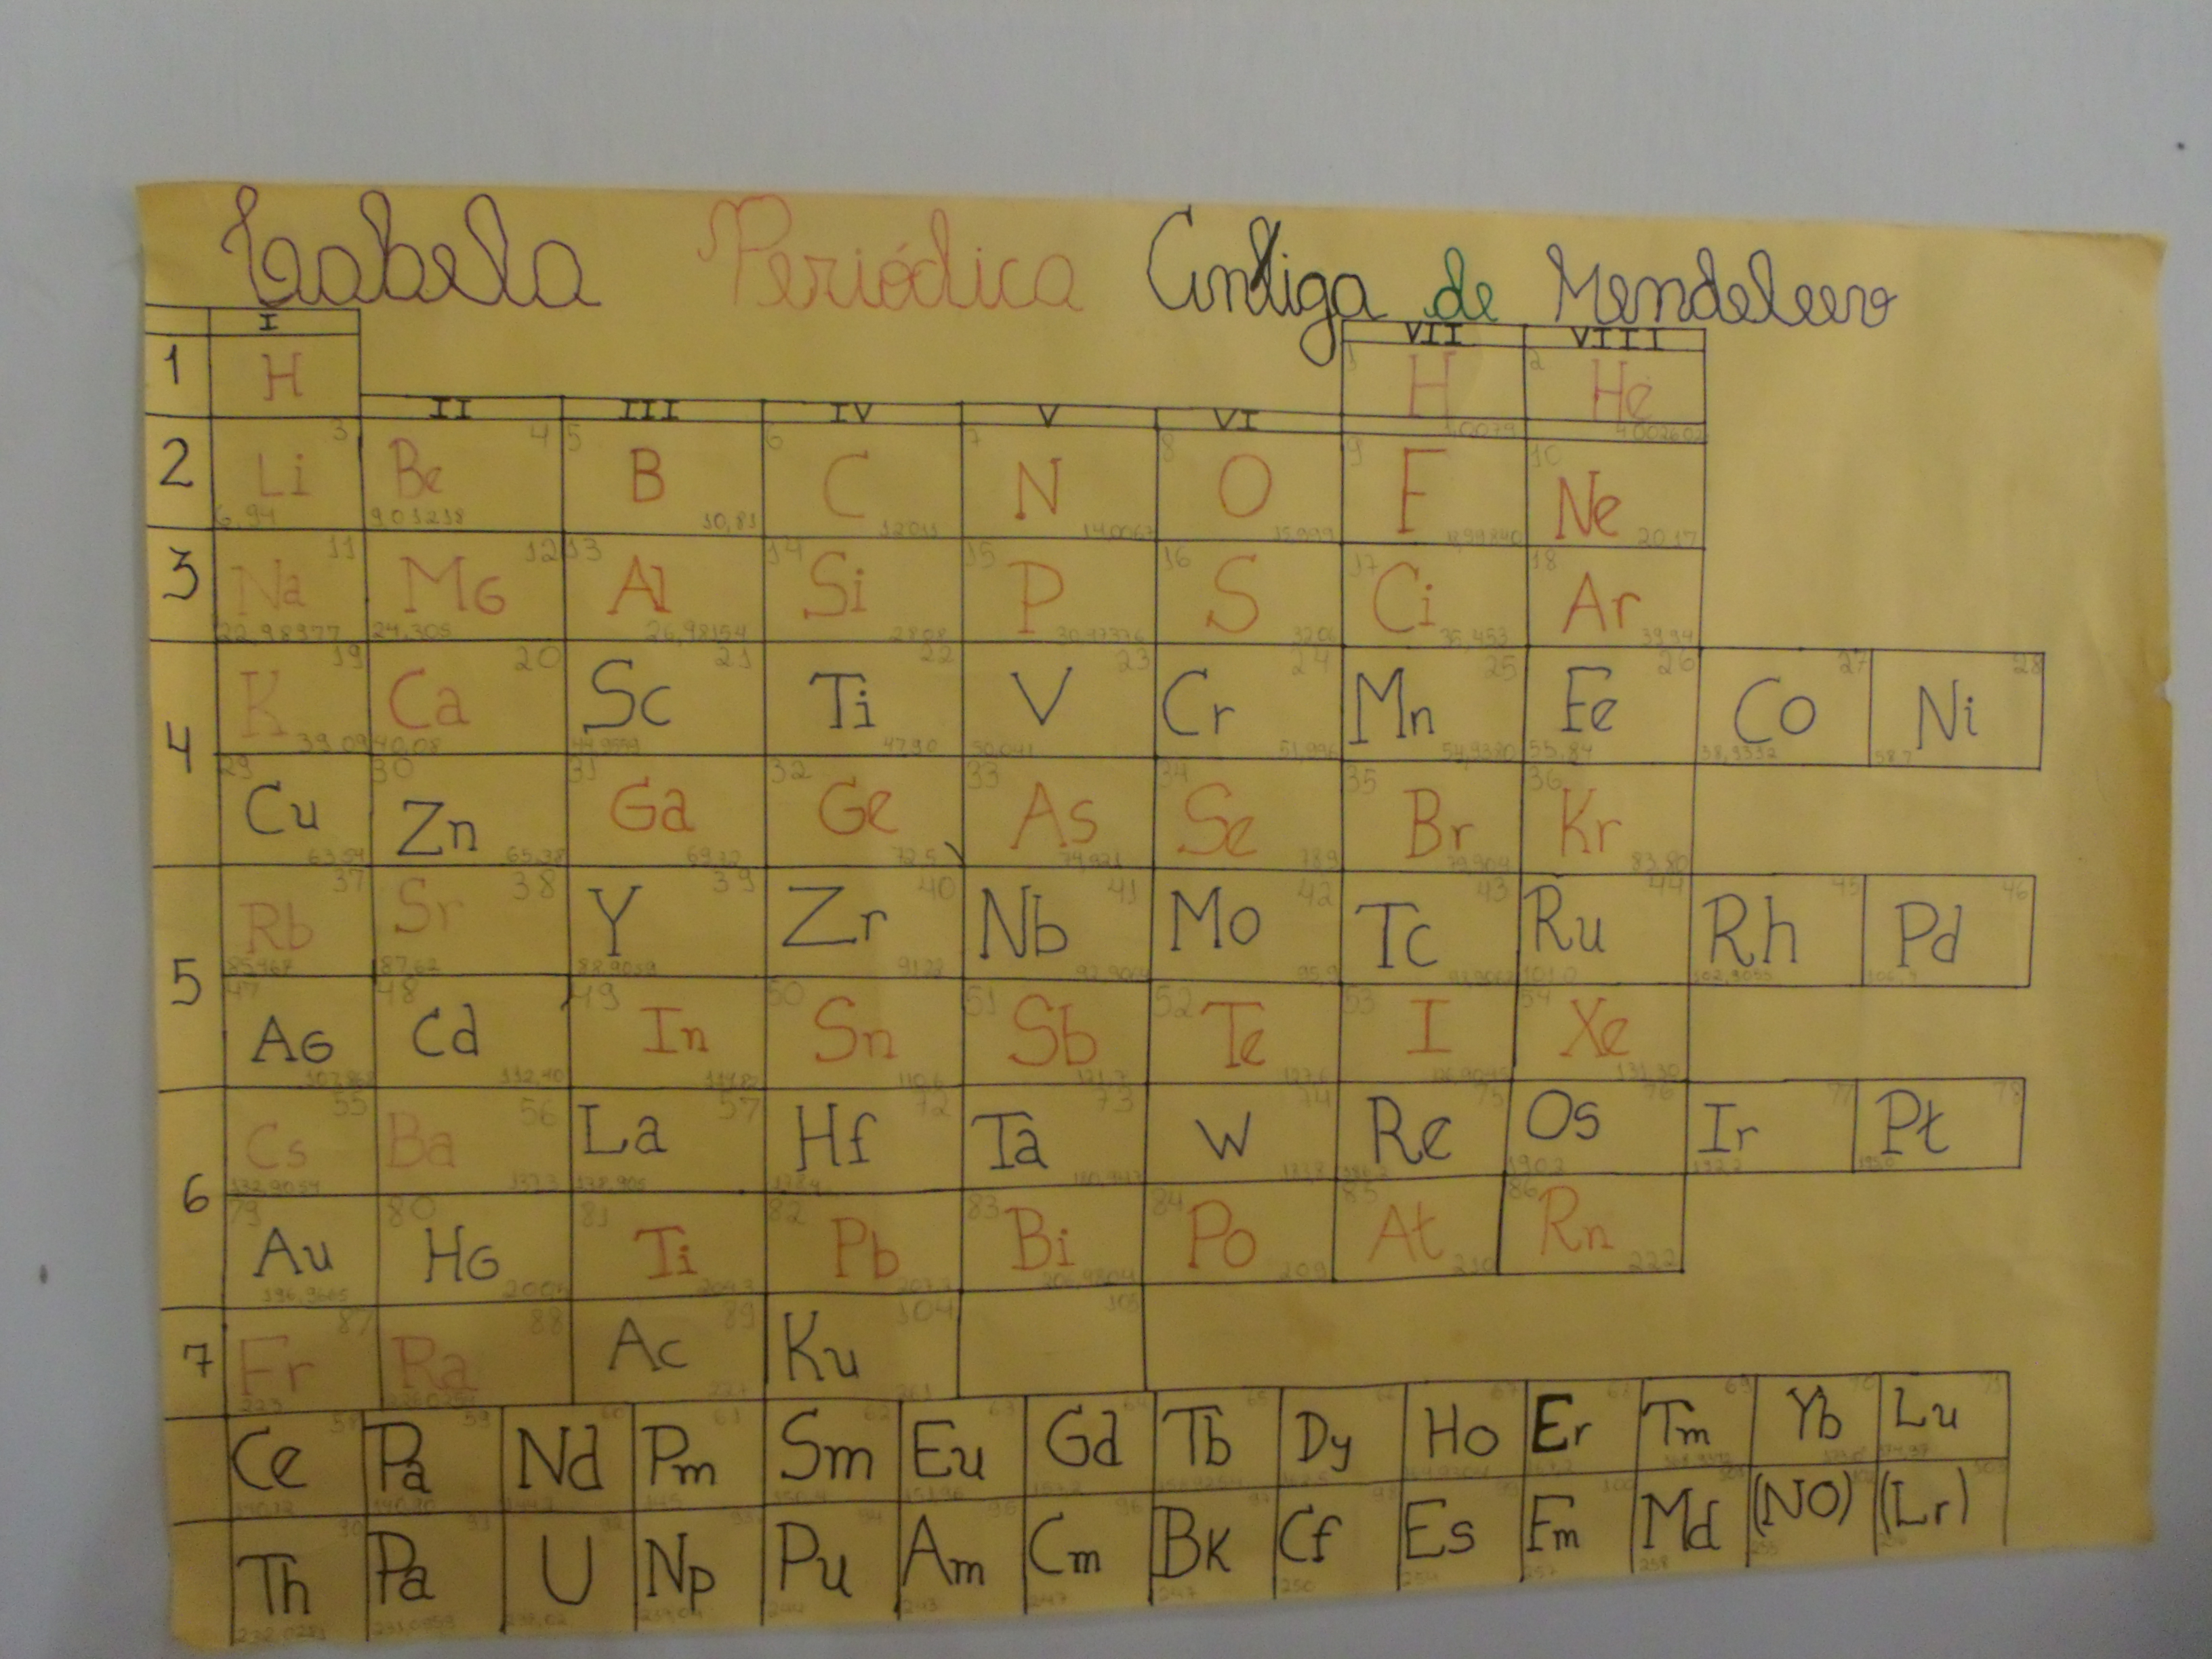 Tabela Periódica Antiga de Mendeleev
I VII VIII
1 H 1 H 1,0079 2 He 4,002602
II III IV V VI
2 Li 3 6,94 Be 4 9,01218 5 B 10,81 6 C 12,011 7 N 14,0067 8 O 15,999 9 F 10 Ne 20,17
3 Na 11 22,98977 MG 12 24,305 13 Al 26,98154 14 Si 28,08 15 P 30,97376 16 S 32,06 17 Ci 35,453 18 Ar 39,94
4 K 19 39,09 Ca 20 40,08 Sc 21 Ti 22 47,90 V 23 50,941 Cr 24 51,996 Mn 25 54,9380 Fe 26 55,84 Co 27 58,9332 Ni 28 58,7
29 Cu 63,54 30 Zn 65,38 31 Ga 69,72 32 Ge 72,5 33 As 74,921 34 Se 78,9 35 Br 79,904 36 Kr 83,80
5 Rb 37 85,468 Sr 38 87,62 Y 39 88,9059 Zr 40 91,22 Nb 41 92,9064 Mo 42 95,9 Tc 43 98,9062 Ru 44 101,0 Rh 45 102,9055 Pd 46 106,4
47 AG 107,868 48 Cd 112,40 49 In 114,82 50 Sn 51 Sb 121,7 52 Te 127,6 53 I 126,9045 54 Xe 131,30
6 Cs 55 132,9054 Ba 56 137,3 La 57 138,905 Hf 72 178,4 Ta 73 W 74 183,8 Re 75 186,2 Os 76 190,2 Ir 77 192,2 Pt 78 195,0
79 Au 196,9665 80 HG 200,5 81 Ti 204,3 82 Pb 207,2 83 Bi 84 Po 209 85 At 210 86 Rn 222
7 Fr 87 223 Ra 88 Ac 89 227 Ku 104 261 105
Ce 58 140,12 Pa 59 Nd 60 Pm 61 145 Sm 62 150,4 Eu 63 151,96 Gd 64 157,2 Tb 65 Dy 66 162,5 Ho 67 Er 68 167,2 Tm 69 Yb 70 Lu 71
Th 90 Pa 91 U 92 Np 93 Pu 94 244 Am 95 243 Cm 96 247 Bk 97 247 Cf 98 250 Es 99 254 Fm 100 257 Md 101 258 (NO) 102 255 (Lr) 103